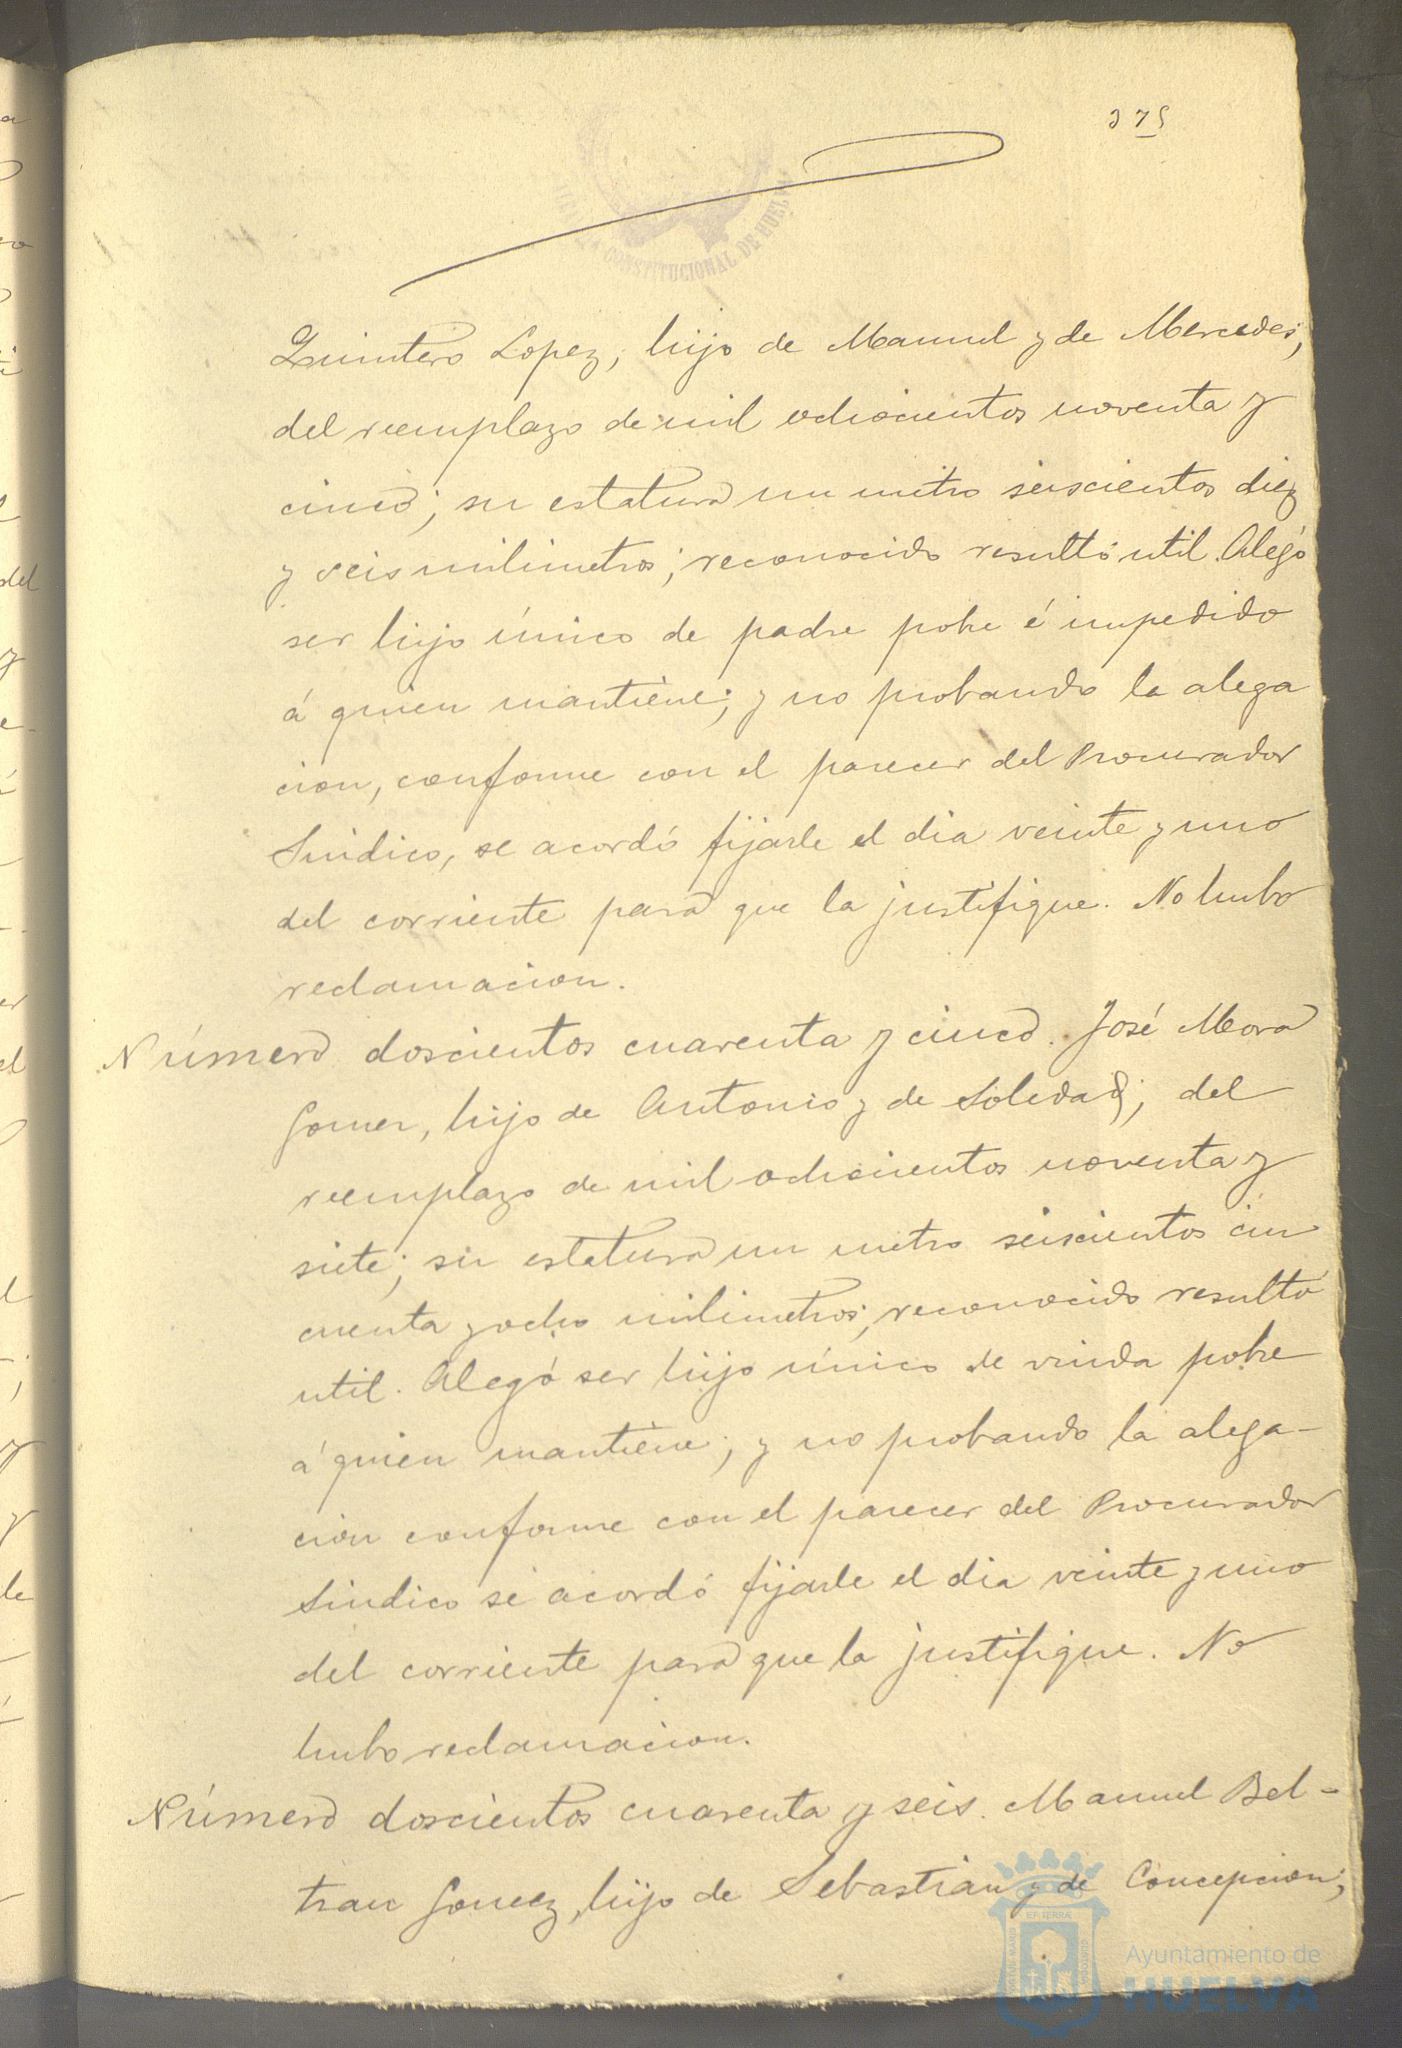 375
CONSTITUCIONAL DE HUELVA
Quintero Lopez, hijo de Manuel y de Mercedes,
del reemplazo de mil ochocientos noventa y
cinco; su estatura un metro seiscientos diez
y seis milimetros; reconocido resultó util. Alegó
ser hijo único de padre pobre é impedido
á quien mantiene; y no probando la alega
cion, conforme con el parecer del Procurador
Sindico, se acordó fijarle el dia veinte y uno
del corriente para que la justifique. No hubo
reclamacion.
Número doscientos cuarenta y cinco. José Mora
Gomez, hijo de Antonio y de Soledad; del
reemplazo de mil ochocientos noventa y
siete; su estatura un metro seiscientos cin
cuenta y ocho milimetros; reconocido resultó
util. Alegó ser hijo único de viuda pobre
á quien mantiene; y no probando la alega-
cion conforme con el parecer del Procurador
Sindico se acordó fijarle el dia veinte y uno
del corriente para que la justifique. No
hubo reclamacion.
Número doscientos cuarenta y seis. Manuel Bel-
tran Gomez, hijo de Sebastian y de Concepcion;
Ayuntamiento de
HUELVA